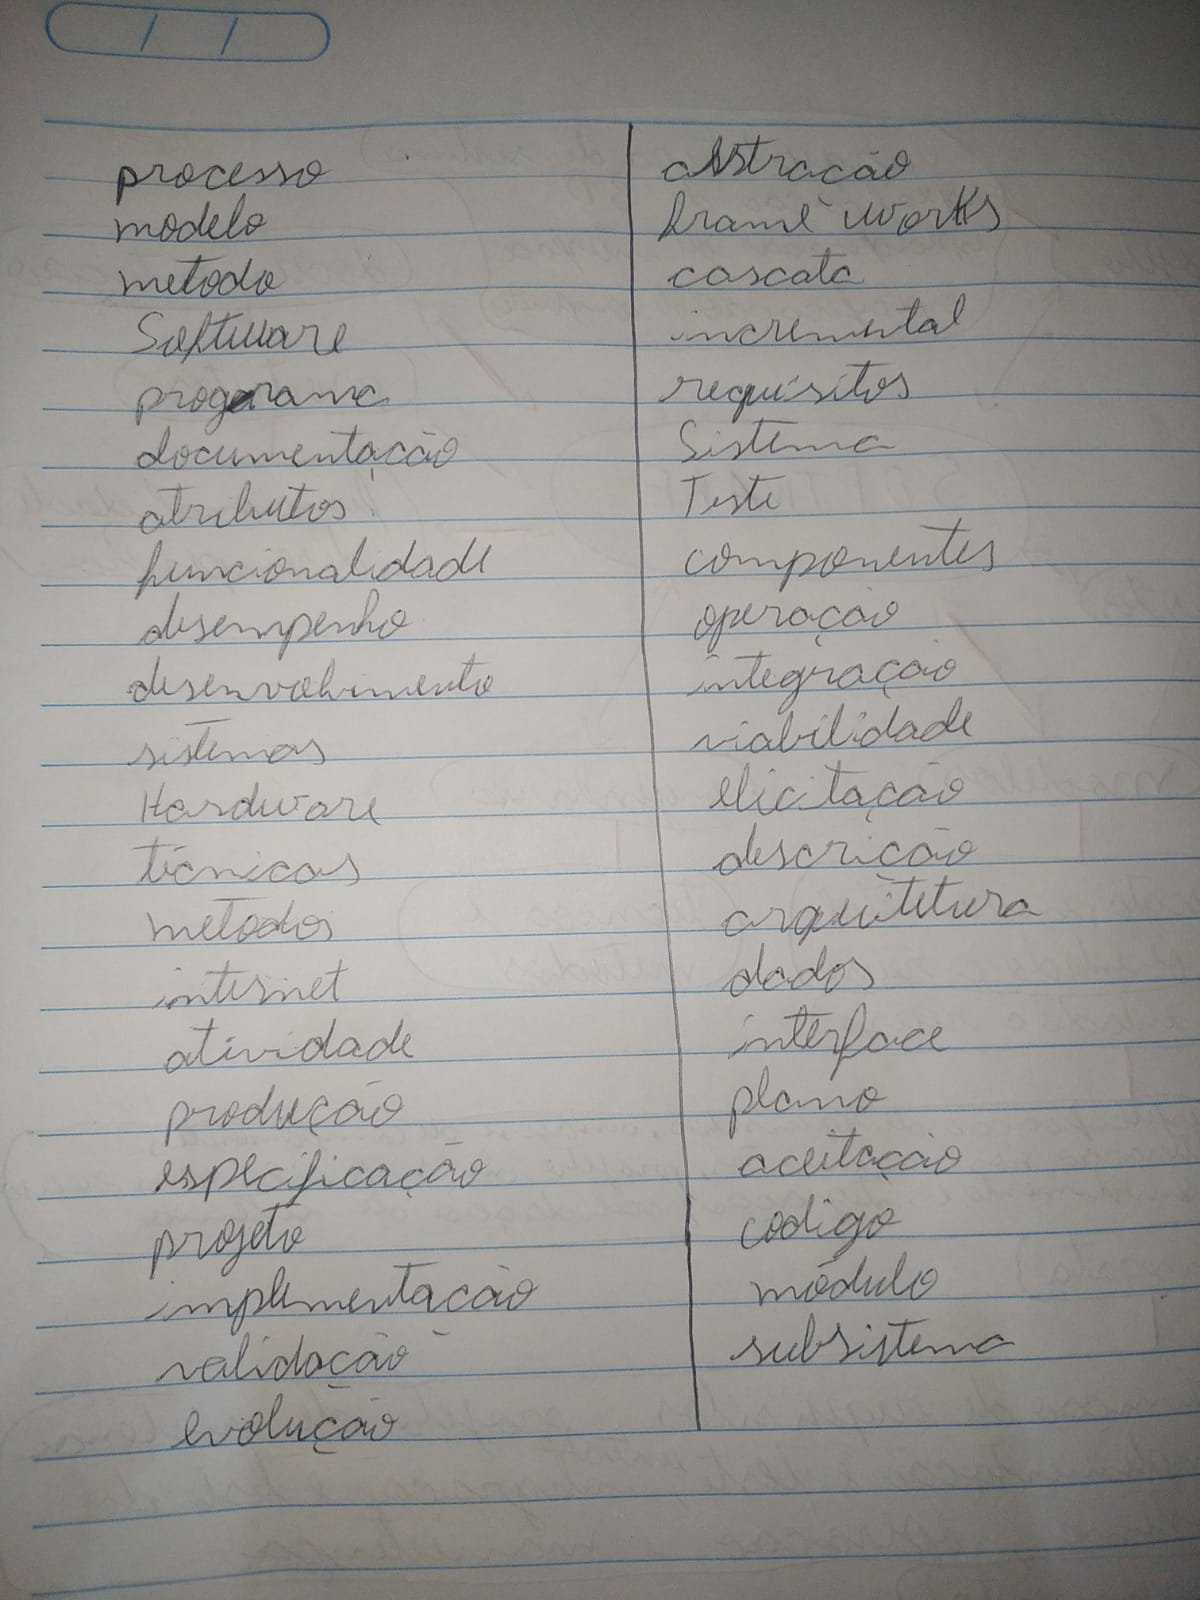 processo
modelo
metodo
Software
programa
documentação
atributos
funcionalidade
desempenho
desenvolvimento
sistemas
Hardware
técnicas
metodos
internet
atividade
produção
especificação
projeto
implementação
validação
evolução
abstração
frame works
cascata
incremental
requisitos
Sistema
Teste
componentes
operação
integração
viabilidade
elicitação
descrição
arquitetura
dados
interface
plano
aceitação
codigo
módulo
subsistema